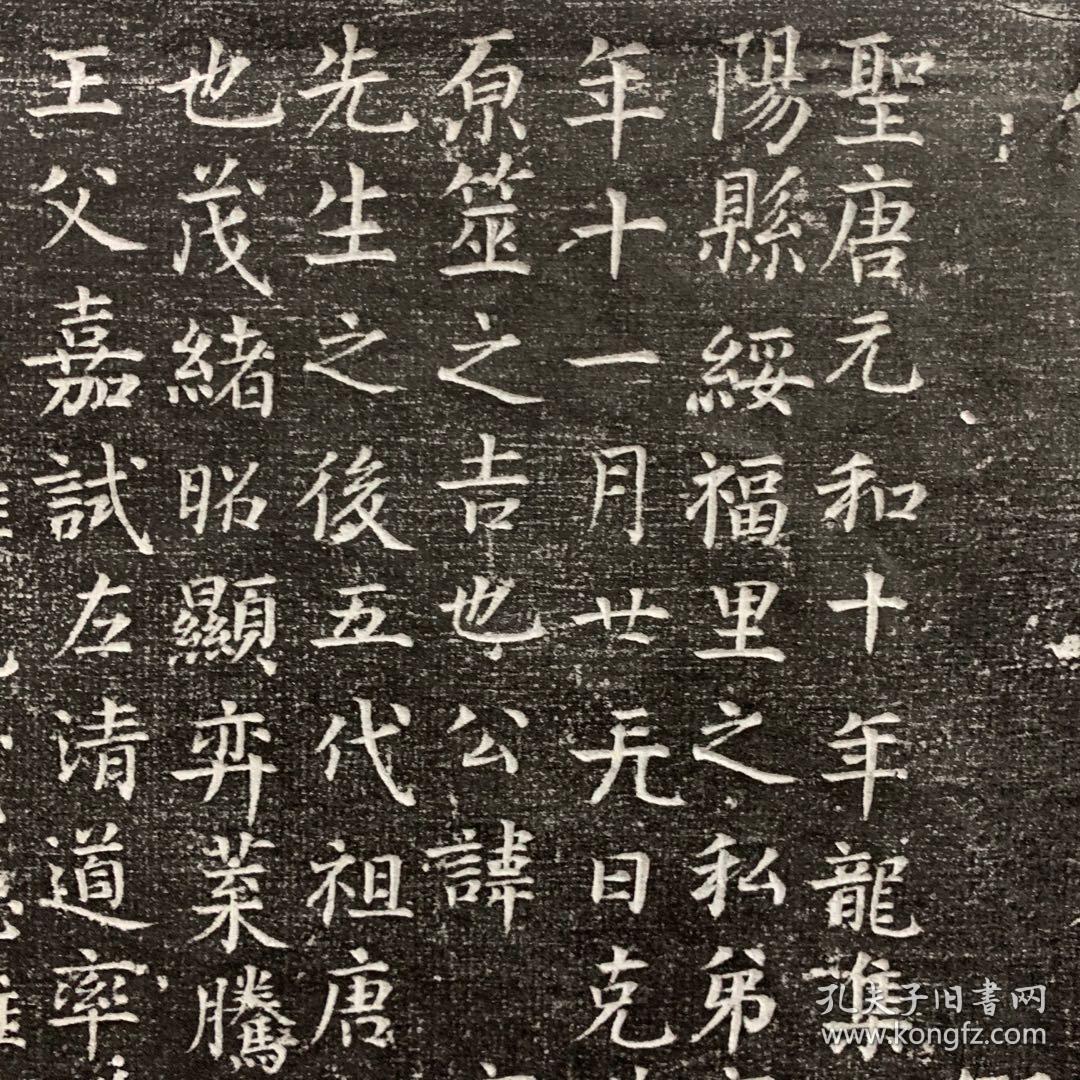 聖唐元和十年龍集
陽縣綏福里之私弟
年十一月廿日克
原筮之吉也公諱
先生之後五代祖唐
也茂緒昭顯弈葉騰
王父嘉試左清道率
孔夫子旧書网
www.kongfz.com